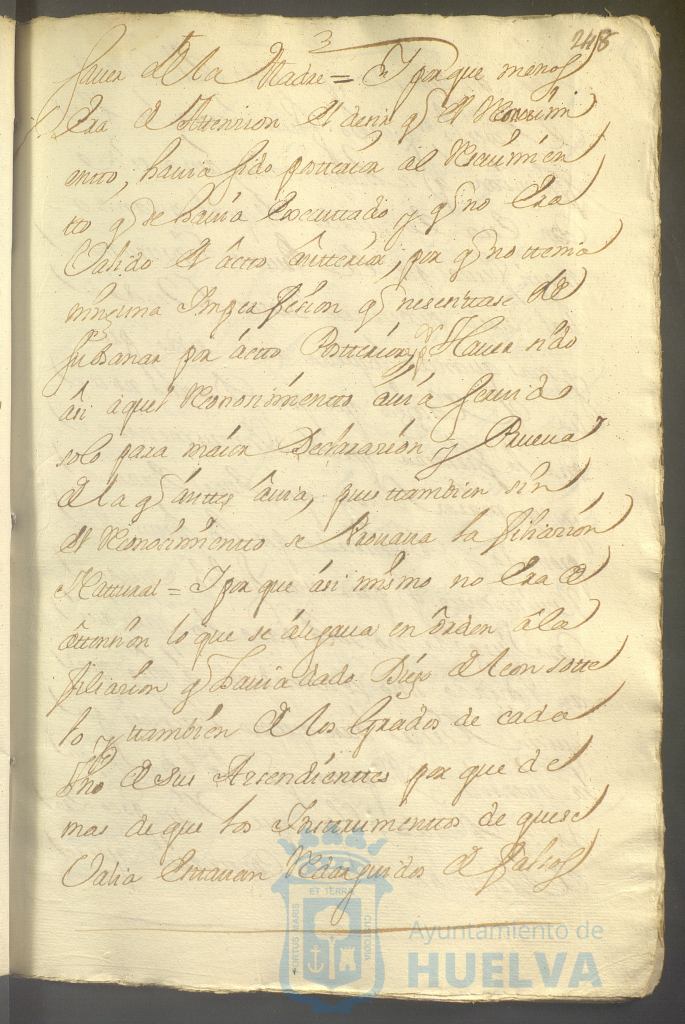 3
248
fauor de la Madre = Y porque menos
Era de Attension el desir q el Reconosim
entto, hauia sido postterior al Resiuimien
tto q se hauia Executtado, y q no Era
Valido el actto antterior, por q no ttenia
ninguna Imperfesion q nesesittase de
subsanar por actto Postterior, y Hauer sido
asi aquel Reconosimientto auia seruido
solo para maior Declarasion y Prueua
de la q anttes auia, pues ttambien sin
el Reconosimientto se Prouaua la filiasion
Nattural = Y por que asi mismo no Era de
attension lo que se alegaua en orden a la
filiasion q hauia dado Diego de leon sotte
lo, y ttambien de los Grados de cada
Vno de sus Ascendienttes por que de
mas de que los Insttrumenttos de que se
Valia Esttauan Redarguidos de falsos
ET TERRA
PORTUS MARIS
CUSTODIA
Ayuntamiento de
HUELVA